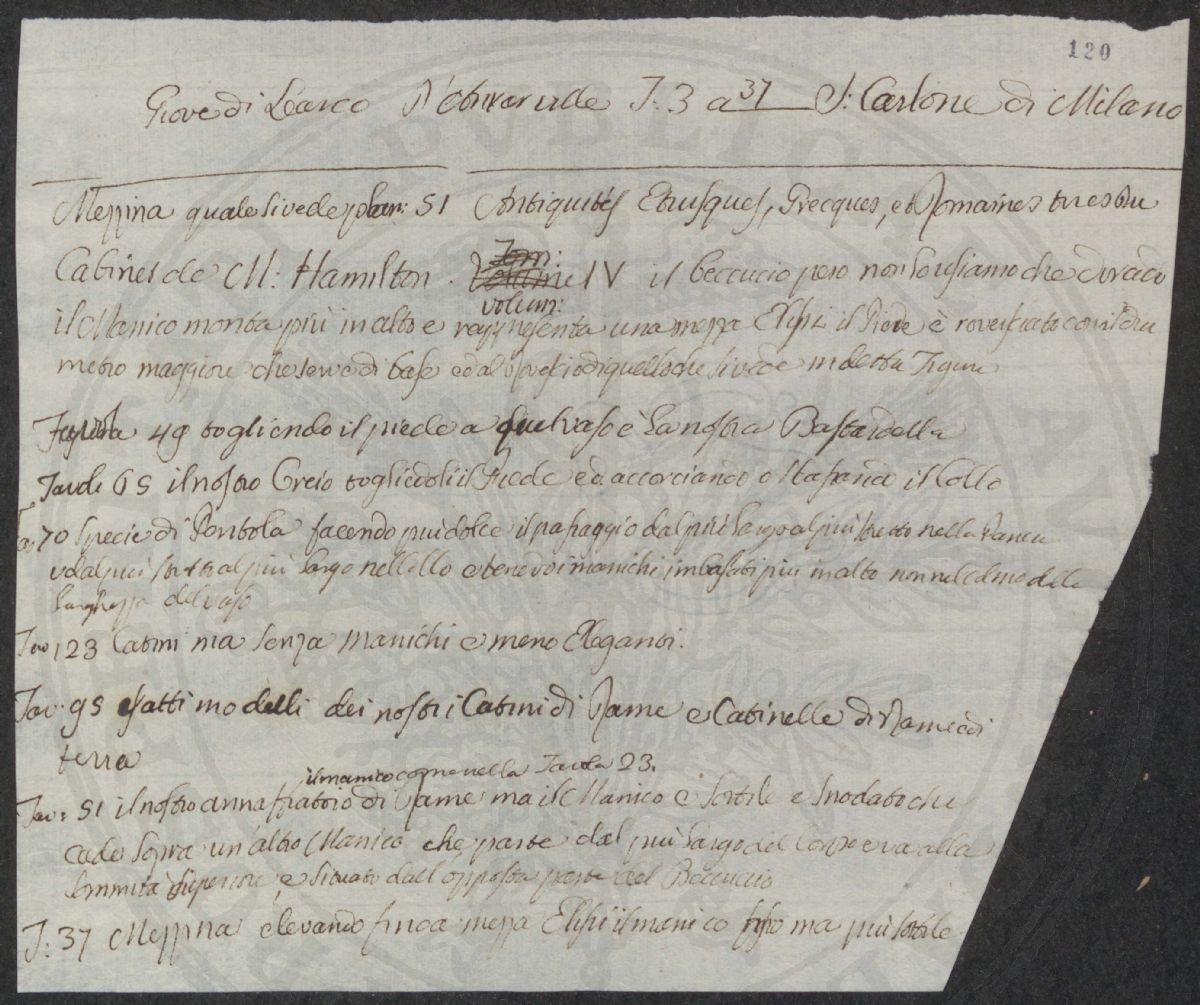 120
Giove di Learco T. 3 a 37 S. Carlone di Milano
Mezzina quale si vede plan: 51 Antiquités Etrusques, Grecques, et Romaines tirés du
Cabinet de M: Hamilton. volum: IV il beccuccio pero non lo usiamo che
il Manico monta più in alto e rappresenta una mezza Elisi il Piede è rovesciato con il dia
metro maggiore che serve di base ed al di quello che si vede in detta Figura
49 togliendo il piede a quel vaso è la nostra Bastardella
65 il nostro togliedoli il Piede ed accorciando il Collo
70 Specie di Pentola facendo più dolce il passaggio dal più largo al più stretto nella Pancia
e dal più stretto al più largo nel collo e tenendo i manichi più in alto non nel delle
larghezza del vaso
Tav 123 Catini ma senza manichi e meno Eleganti.
Tav. 95 esatti modelli dei nostri Catini di Rame e Catinelle di Rame e di
terra
il manico come nella Tavola 23.
Tav: 51 il nostro annaffiatoio di Rame ma il Manico è sottile e snodato che
cade sopra un'altro Manico che parte dal più largo del Corpo e va alla
sommità superiore, e situato dall'opposta parte del Beccuccio
T: 37 Mezzina elevando fino a mezza Elisi il manico fisso ma più sottile